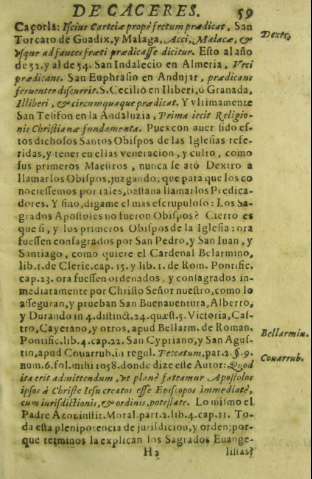 DE CACERES. 59
Caçorla: Iscius Carteiæ propè fectum prædicat, San
Torcato de Guadix, y Malaga, Acci, Malacæ, &
vsque ad fauces fræti prædicasse dicitur. Esto al año
de 52. y al de 54. San Indalecio en Almeria, Vrci
prædicans. San Euphrasio en Andujar, prædicans
feruenter discurrit. S. Cecilio en Iliberi, ó Granada,
Illiberi, & circumquaque prædicat. Y vltimamente
San Tesifon en la Andaluzia, Prima iecit Religio-
nis Christianæ fundamenta. Pues con auer sido es-
tos dichosos Santos Obispos de las Iglesias refe-
ridas, y tener en ellas veneracion, y culto, como
sus primeros Maestros, nunca se atò Dextro a
llamarlos Obispos, juzgando, que para que los co
nociessemos por tales, bastaua llamarlos Predica-
dores. Y sino, digame el mas escrupuloso: Los Sa-
grados Apostoles no fueron Obispos? Cierto es
que si, y los primeros Obispos de la Iglesia: ora
fuessen consagrados por San Pedro, y San Iuan, y
Santiago, como quiere el Cardenal Belarmino,
lib. 1. de Cleric. cap. 15. y lib. 1. de Rom. Pontific.
cap. 23. ora fuessen ordenados, y consagrados in-
mediatamente por Christo Señor nuestro, como lo
asseguran, y prueban San Buenauentura, Alberto,
y Durando in 4. distinct. 24. quæst. 5. Victoria, Cas-
tro, Cayetano, y otros, apud Bellarm. de Roman.
Pontific. lib. 4. cap. 22. San Cypriano, y San Agus-
tin, apud Couarrub. in regul. Peccatum, par. 2. §. 9.
num. 6. fol. mihi 1058. donde dize este Autor: Quod
ita erit admittendum, vt planè fateamur Apostolos
ipsos à Christo Iesu creatos esse Episcopos immediatè,
cum iurisdictionis, & ordinis, potestate. Lo mismo el
Padre Azor in Moral. part. 2. lib. 4. cap. 11. To-
da esta plenipotencia de jurisdicion, y orden; por-
que terminos la explican los Sagrados Euange-
H 2 listas?
Dexto.
Bellarmin.
Couarrub.